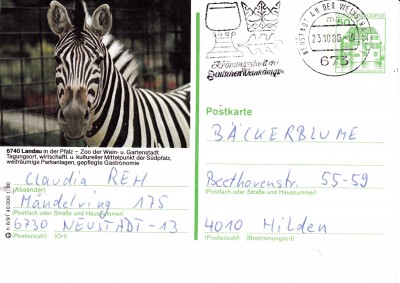 NEUSTADT A.D. WEINSTR
23.10.80
673
50
Krönungsstadt der
Deutschen Weinkönigin
6740 Landau in der Pfalz – Zoo der Wein- u. Gartenstadt
Tagungsort, wirtschaftl. u. kultureller Mittelpunkt der Südpfalz,
weiträumige Parkanlagen, gepflegte Gastronomie
Claudia REH
(Absender)
Mandelring 175
(Postfach oder Straße und Hausnummer)
6730 NEUSTADT-13
(Postleitzahl) (Ort)
Postkarte
BÄCKERBLUME
Beethovenstr. 55-59
(Postfach oder Straße und Hausnummer)
4010 Hilden
(Postleitzahl) (Bestimmungsort)